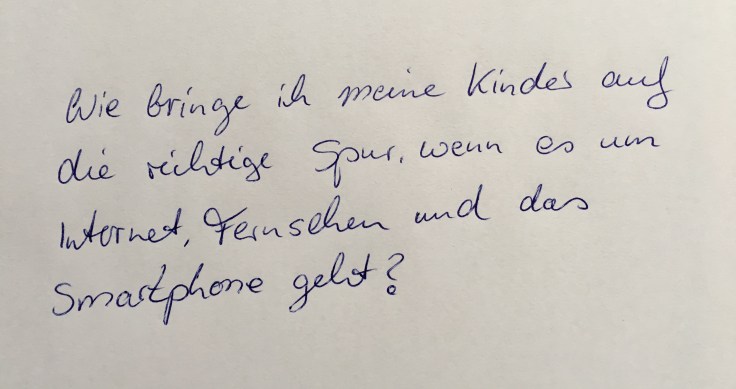 Wie bringe ich meine Kinder auf
die richtige Spur, wenn es um
Internet, Fernsehen und das
Smartphone geht?